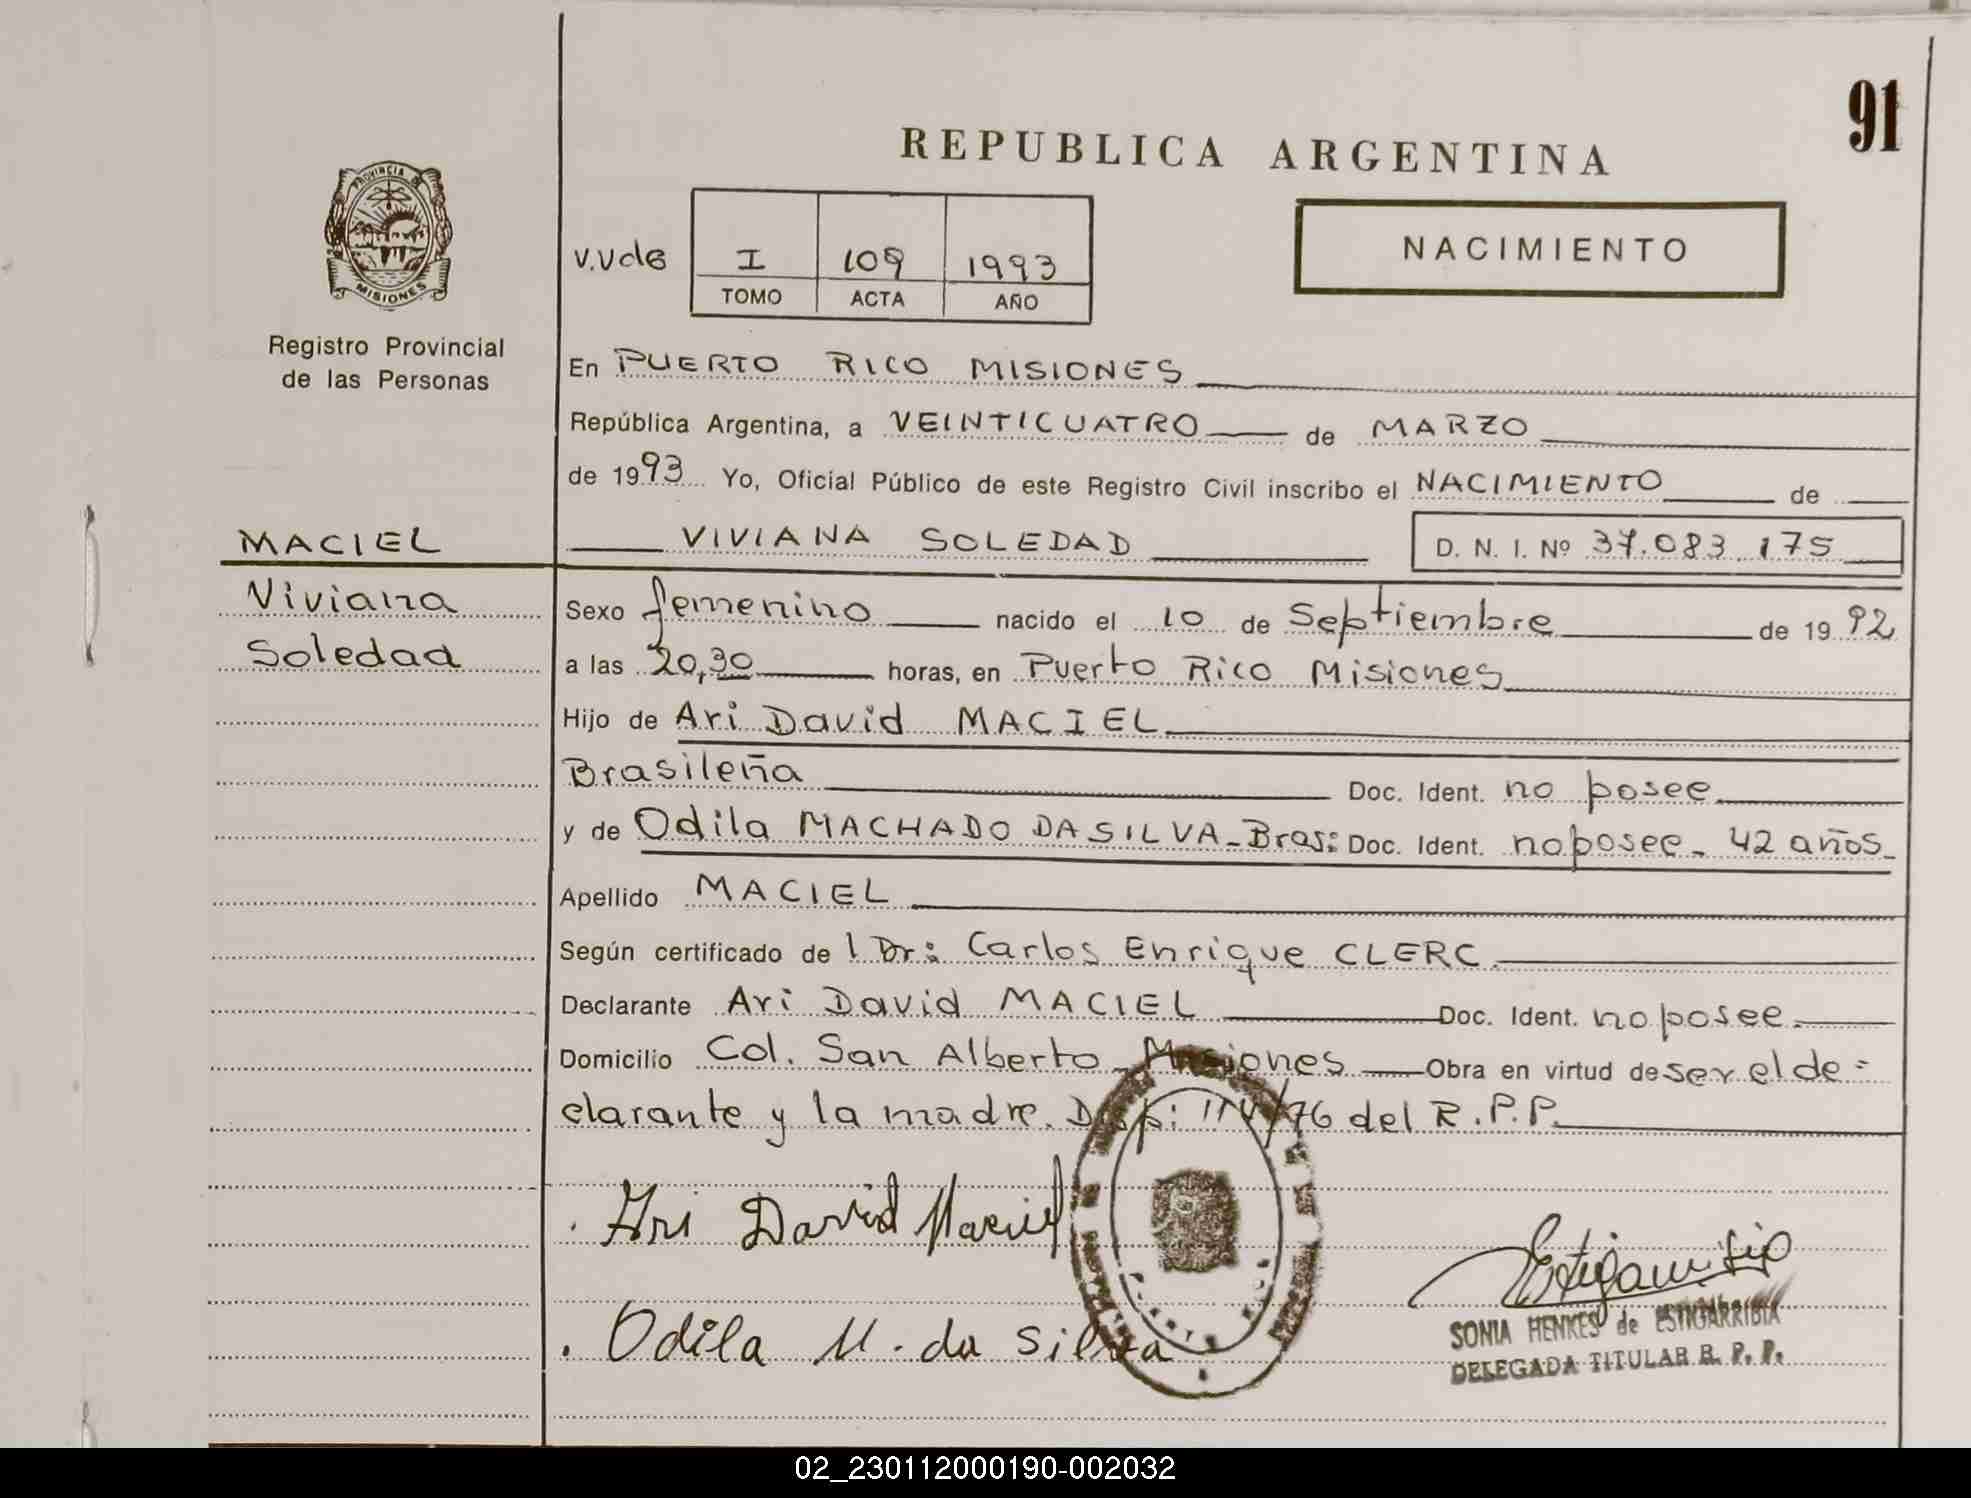 91
REPUBLICA ARGENTINA
PROVINCIA DE
MISIONES
Registro Provincial
de las Personas
V.Vde I 109 1993
TOMO ACTA AÑO
NACIMIENTO
En PUERTO RICO MISIONES
República Argentina, a VEINTICUATRO de MARZO
de 1993 Yo, Oficial Público de este Registro Civil inscribo el NACIMIENTO de
MACIEL VIVIANA SOLEDAD D. N. I. Nº 37.083.175
Viviana Sexo femenino nacido el 10 de Septiembre de 1992
Soledad a las 20,30 horas, en Puerto Rico Misiones
Hijo de Ari David MACIEL
Brasileña Doc. Ident. no posee
y de Odila MACHADO DA SILVA-Bras: Doc. Ident. no posee - 42 años-
Apellido MACIEL
Según certificado de l Dr: Carlos Enrique CLERC.
Declarante Ari David MACIEL Doc. Ident. no posee.
Domicilio Col. San Alberto - Misiones Obra en virtud de ser el de=
clarante y la madre. Disp: 114/76 del R.P.P.
Ari David Maciel
Odila M. da Silva
SONIA HENKES de ESTIGARRIBIA
DELEGADA TITULAR R. P. P.
02_230112000190-002032